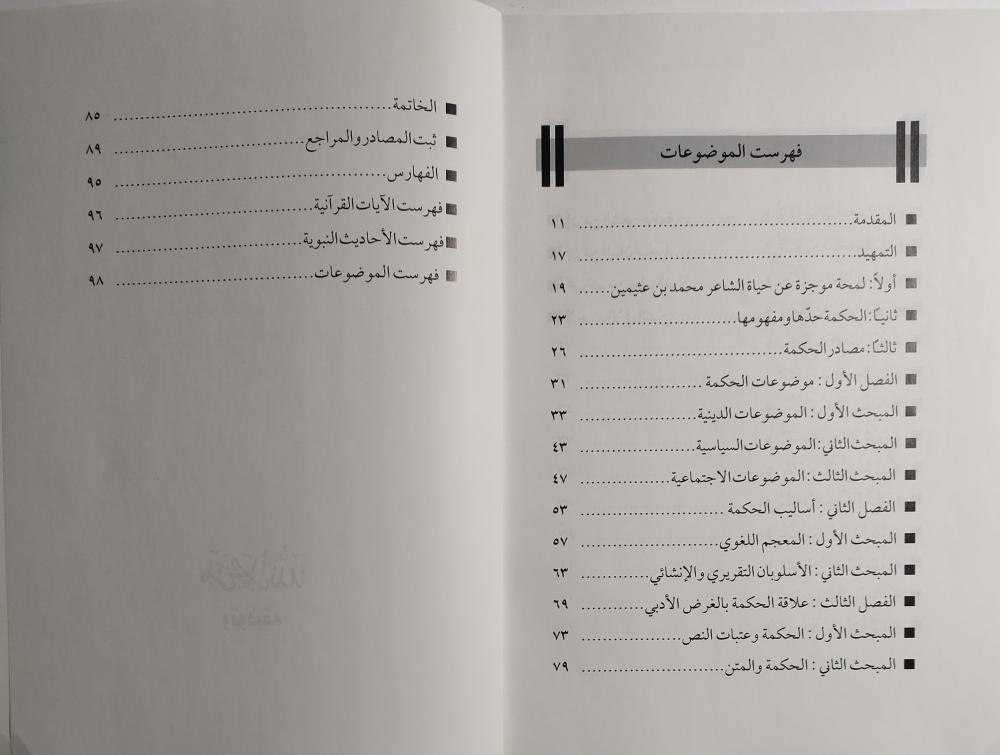 فهرست الموضوعات
المقدمة................................................ ١١
التمهيد................................................ ١٧
أولاً: لمحة موجزة عن حياة الشاعر محمد بن عثيمين...... ١٩
ثانيـًا: الحكمة حدّها ومفهومها........................... ٢٣
ثالثـًا: مصادر الحكمة................................... ٢٦
الفصل الأول : موضوعات الحكمة ..................... ٣١
المبحث الأول : الموضوعات الدينية.................... ٣٣
المبحث الثاني: الموضوعات السياسية.................... ٤٣
المبحث الثالث : الموضوعات الاجتماعية................ ٤٧
الفصل الثاني : أساليب الحكمة ......................... ٥٣
المبحث الأول : المعجم اللغوي........................ ٥٧
المبحث الثاني: الأسلوبان التقريري والإنشائي............ ٦٣
الفصل الثالث : علاقة الحكمة بالغرض الأدبي............ ٦٩
المبحث الأول : الحكمة وعتبات النص.................. ٧٣
المبحث الثاني : الحكمة والمتن......................... ٧٩
الخاتمة................................................ ٨٥
ثبت المصادر والمراجع................................. ٨٩
الفهارس............................................... ٩٥
فهرست الآيات القرآنية.................................. ٩٦
فهرست الأحاديث النبوية................................ ٩٧
فهرست الموضوعات.................................... ٩٨